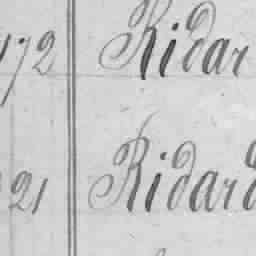 172 Ridar
21 Ridard